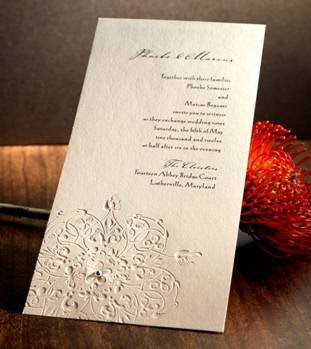 Phoebe & Marcus
Together with their families
Phoebe Somerset
and
Marcus Bryant
invite you to witness
as they exchange wedding vows
Saturday, the fifth of May
two thousand and twelve
at half after six in the evening
The Cloisters
Fourteen Abbey Bridge Court
Lutherville, Maryland